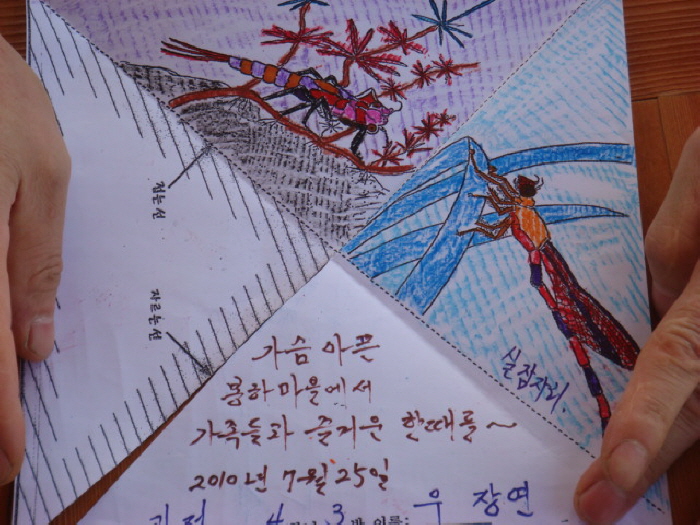 접는선
자르는선
실잠자리.
가슴 아픈
봉하마을에서
가족들과 즐거운 한때를~
2010년 7월 25일
4 3 반 이름: 우 장연